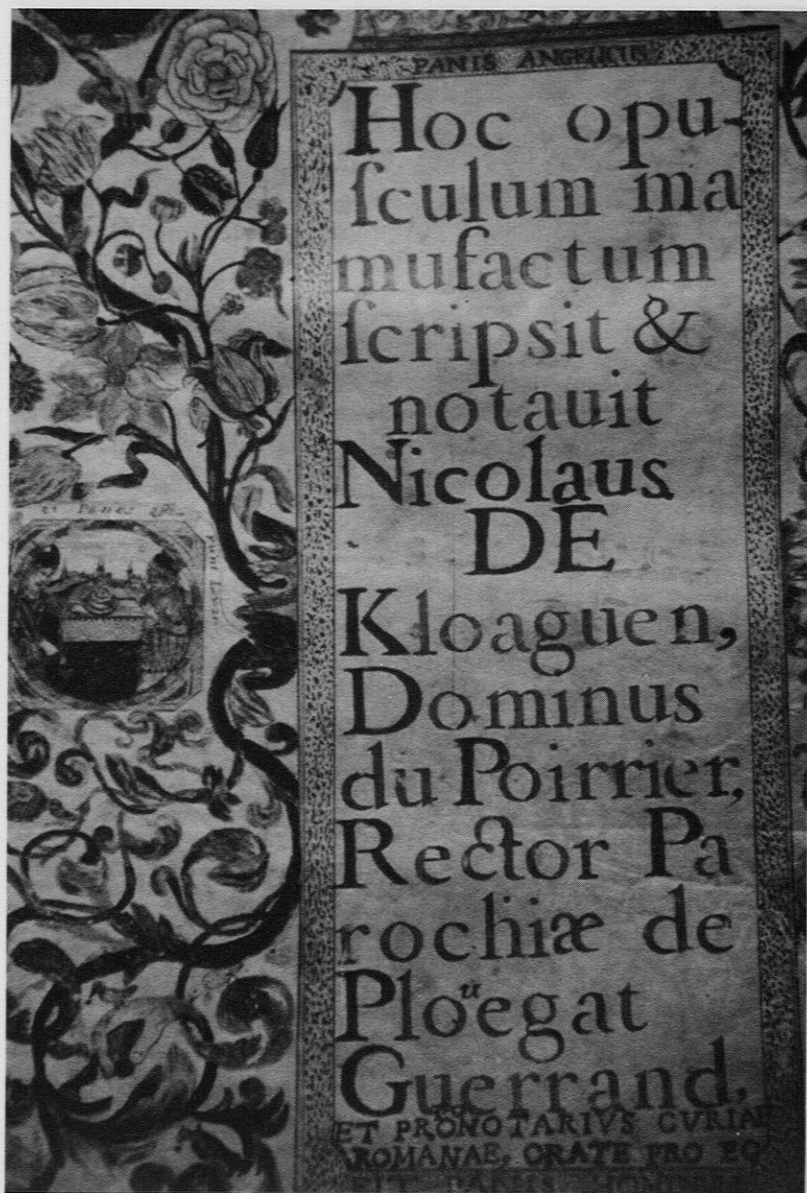 PANIS ANGELICUS
Hoc opu-
ſculum ma
mufactum
ſcripsit &
notauit
Nicolaus
DE
Kloaguen,
Dominus
du Poirrier,
Rector Pa
rochiæ de
Ploᵘegat
Guerrand,
ET PRONOTARIVS CVRIAE
ROMANAE, ORATE PRO EO
et Panes